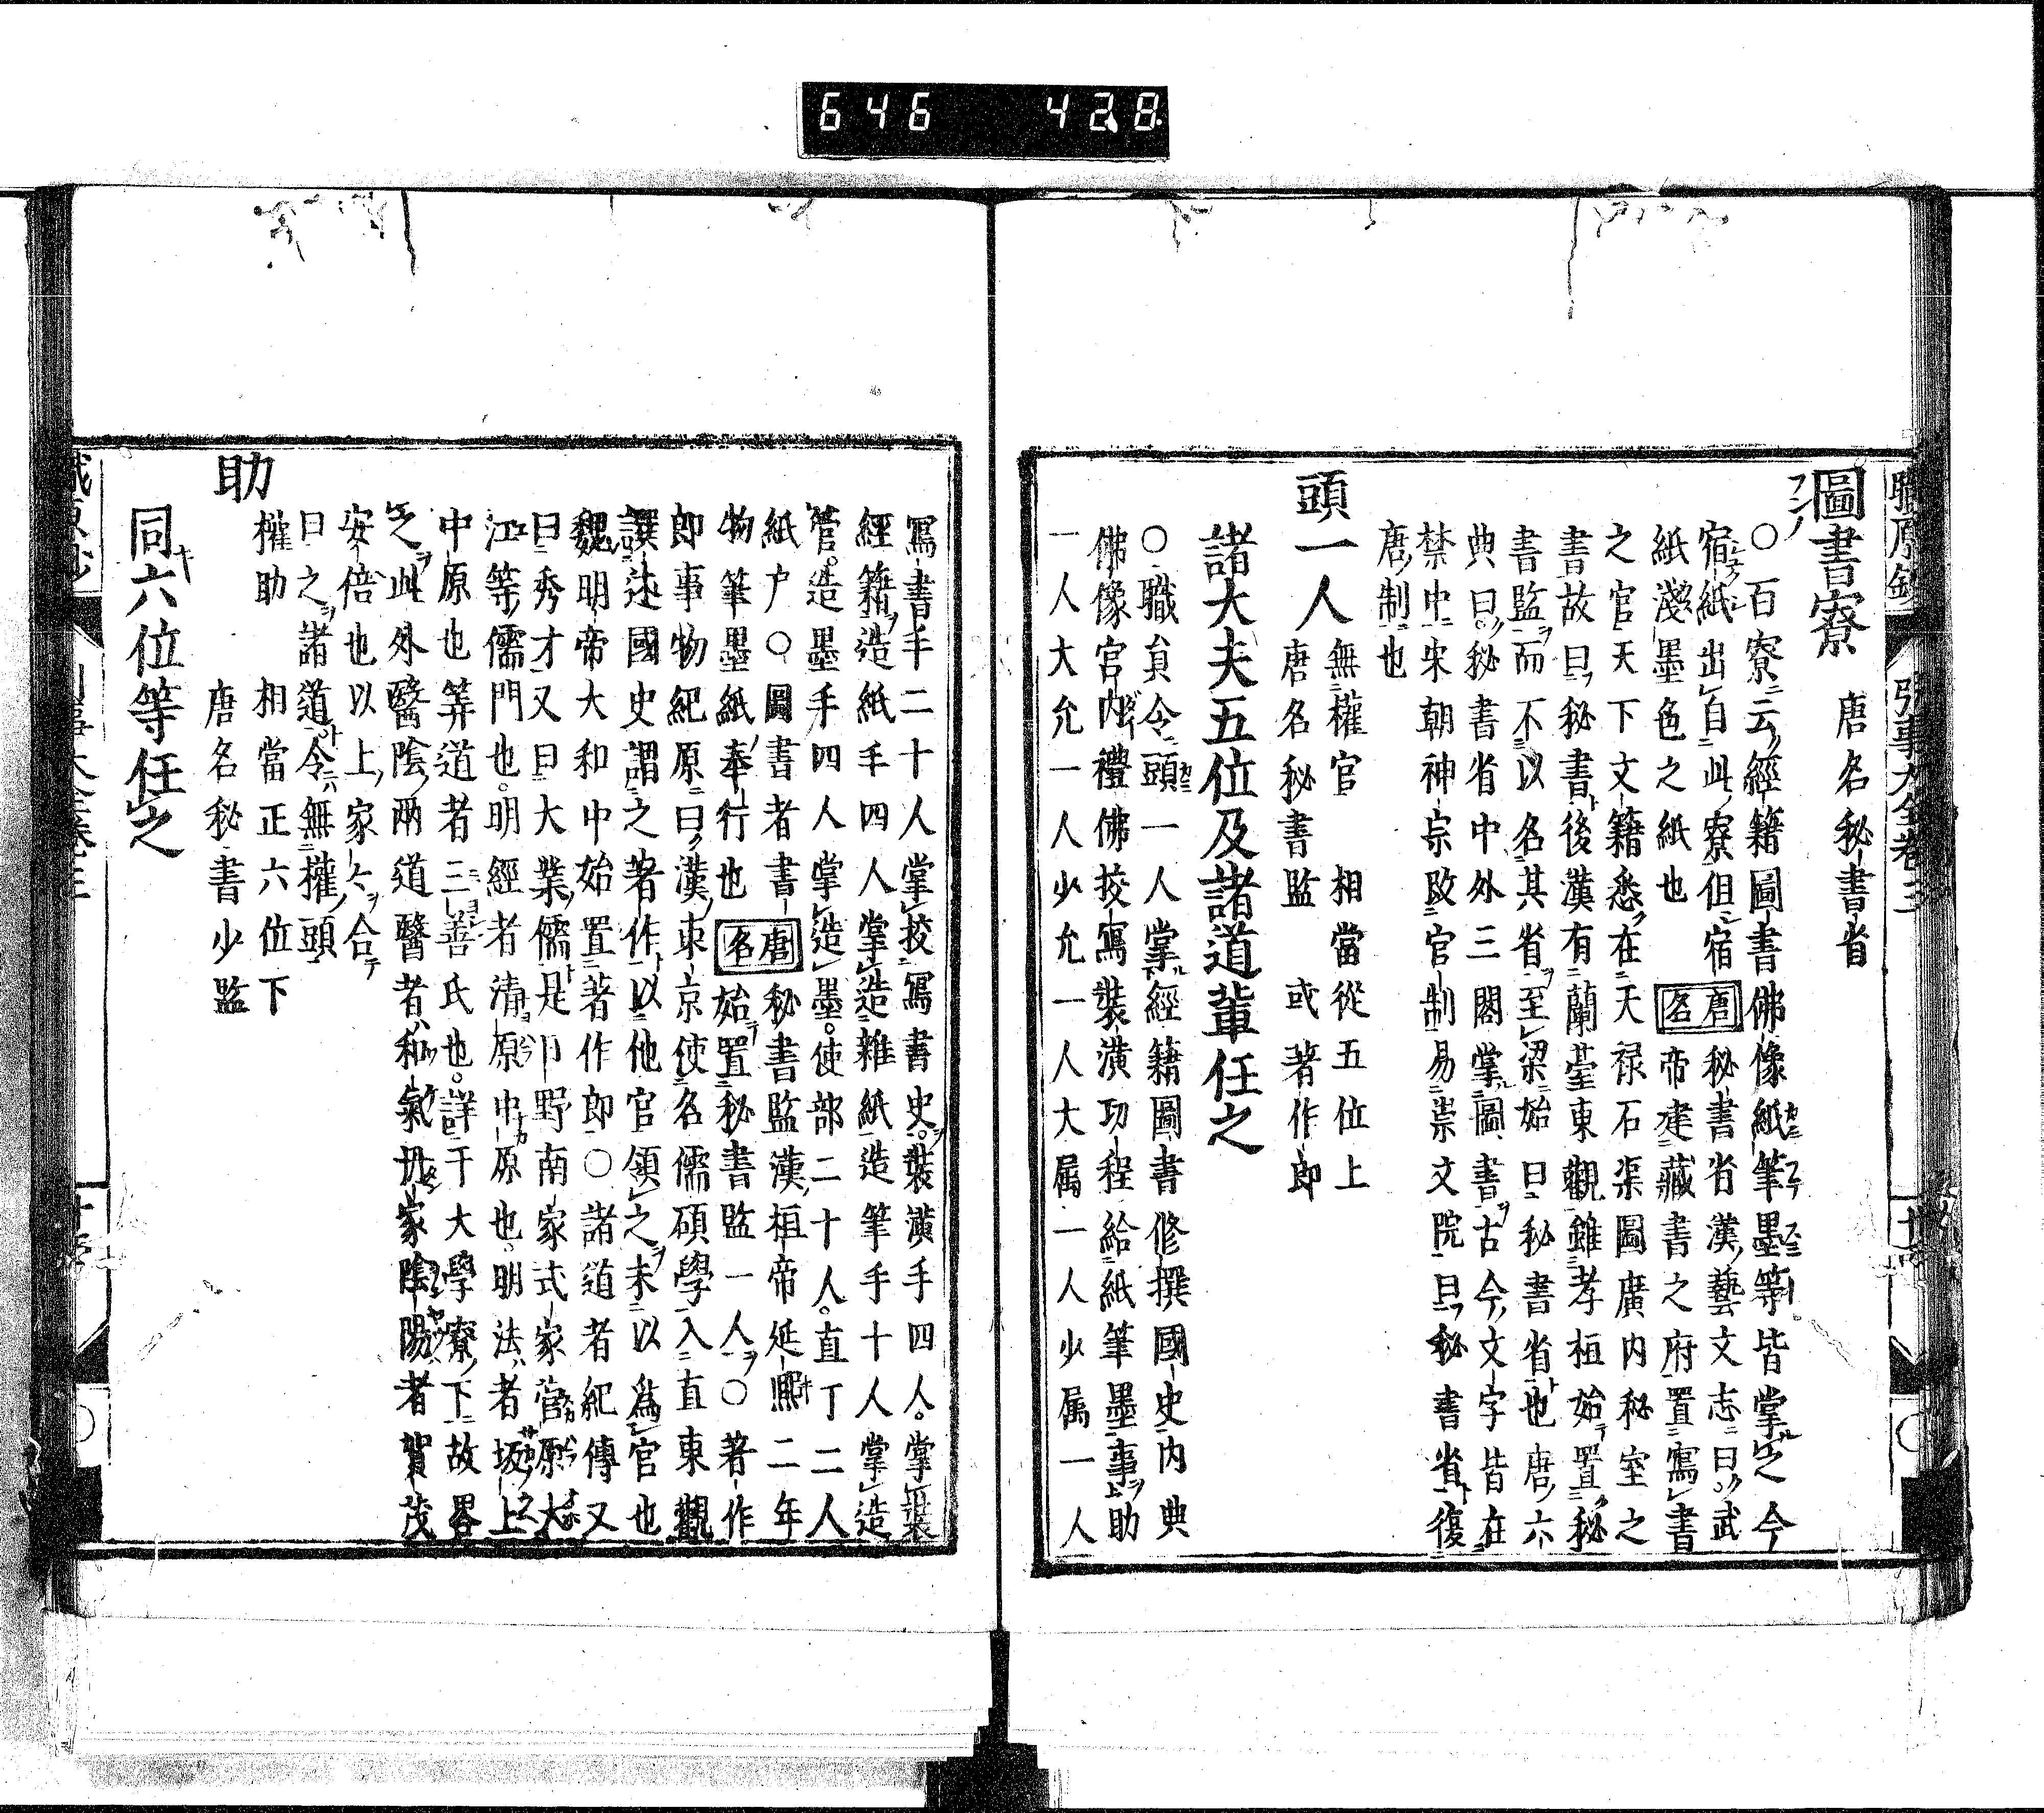 646 42.8
圖書寮 唐名秘書省
○百寮ニ云經籍圖書佛像紙筆墨等皆掌之今
宿紙出自此寮但宿 唐名 秘書省漢藝文志曰武
紙淺墨色之紙也 帝建藏書之府置寫書
之官天下文籍悉在天禄石渠圖廣内秘室之
書故曰秘書後漢有蘭臺東觀雖孝桓始置秘
書監而不以名其省至梁始曰秘書省也唐六
典曰秘書省中外三閣掌圖書古今文字皆在
禁中宋朝神宗改官制易崇文院曰秘書省復
唐制也
頭一人 無權官 相當從五位上
唐名秘書監 或著作郎
諸大夫五位及諸道輩任之
○職貟令頭一人掌經籍圖書修撰國史内典
佛像宮内禮佛挍寫裝潢功程給紙筆墨事助
一人大允一人少允一人大属一人少属一人
寫書手二十人掌挍寫書史裝潢手四人掌裝
經籍造紙手四人掌造雜紙造筆手十人掌造
管造墨手四人掌造墨使部二十人直丁二人
紙户○圖書者書 唐名 秘書監漢桓帝延熈二年
物筆墨紙奉行也 始置秘書監一人○著作
郎事物紀原曰漢東京使名儒碩學入直東觀
譔述國史謂之著作以他官領之未以爲官也
魏明帝大和中始置著作郎○諸道者紀傳又
曰秀才又曰大業儒是日野南家式家菅原大
江等儒門也明經者清原中原也明法者坂上
中原也筭道者三善氏也詳于大學寮下故畧
之此外醫陰兩道醫者和氣丹家陰陽者賀茂
安倍也以上家々合
曰之諸道令無權頭
助 權助 相當正六位下
唐名秘書少監
同六位等任之